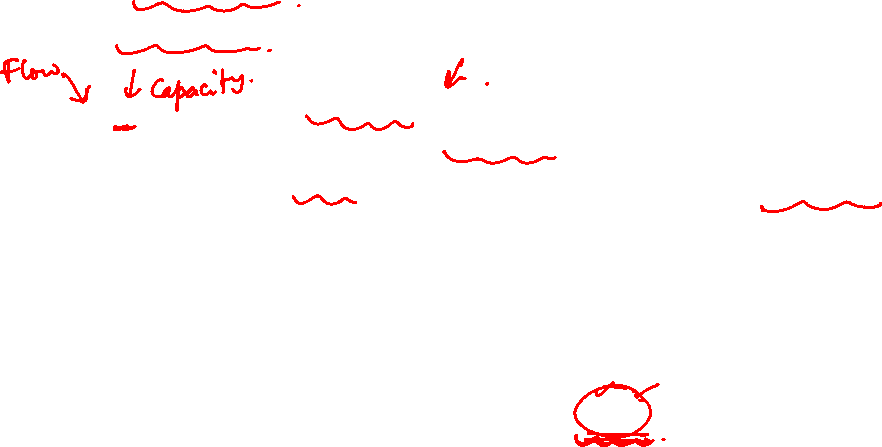 Flow
Capacity.